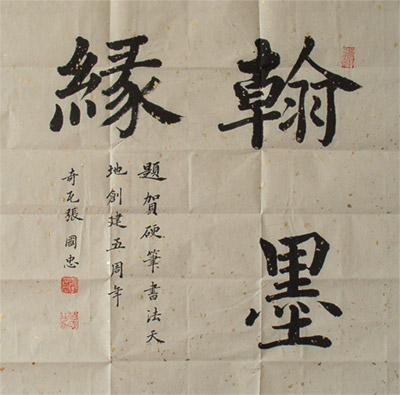 翰墨
緣
題賀硬筆書法天
地創建五周年
奇瓦張國忠